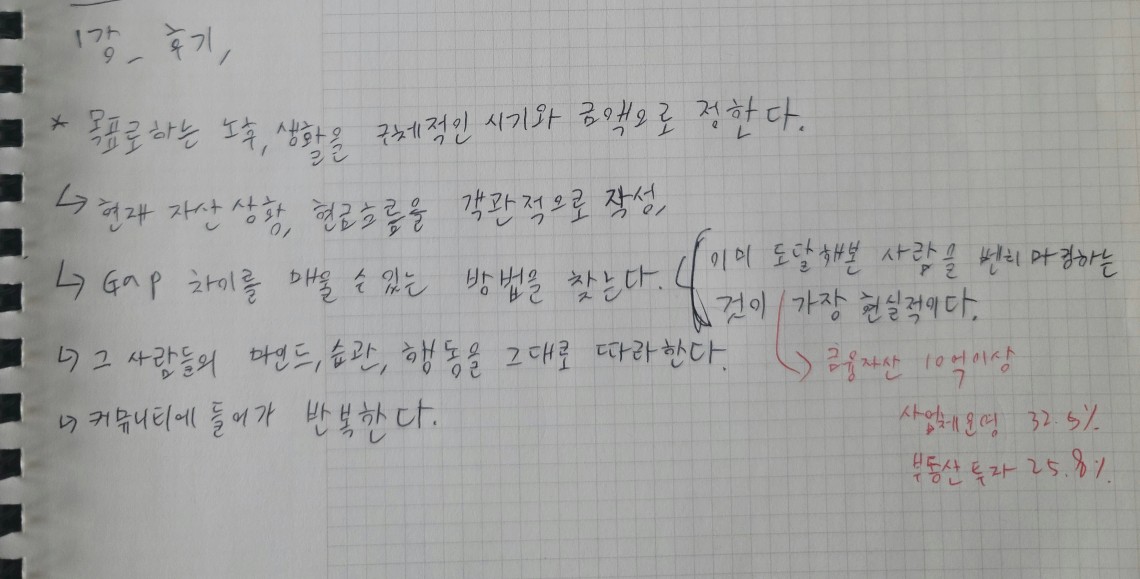 1강_ 후기,
* 목표로하는 노후, 생활을 구체적인 시기와 금액으로 정한다.
↳ 현재 자산 상황, 현금흐름을 객관적으로 작성,
↳ Gap 차이를 매울 수 있는 방법을 찾는다.
이미 도달해본 사람을 벤치마킹하는
것이 가장 현실적이다.
↳ 그 사람들의 마인드, 습관, 행동을 그대로 따라한다.
→ 금융자산 10억이상
↳ 커뮤니티에 들어가 반복한다.
사업체운영 32.5%
부동산투자 25.8%